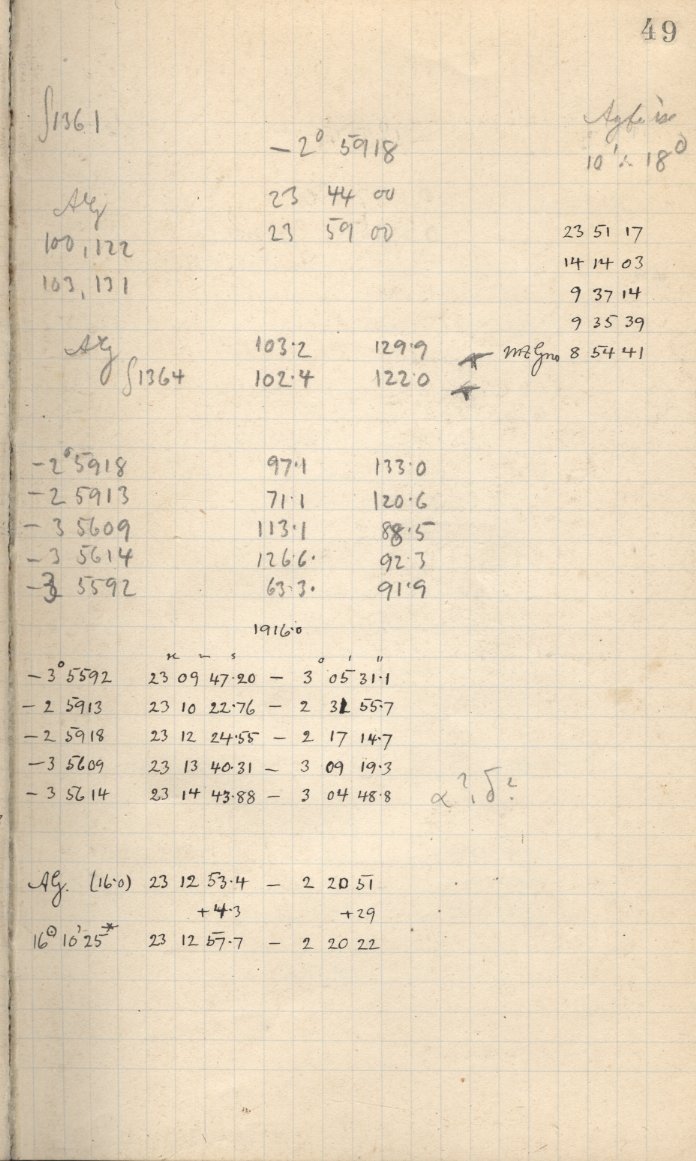 49
∫1361
-2° 5918
10' = 18°
AG
23 44 00
100, 122
23 59 00
103, 131
23 51 17
14 14 03
9 37 14
9 35 39
8 54 41
AG 103.2 129.9
∫1364 102.4 122.0
-2° 5918 97.1 133.0
-2 5913 71.1 120.6
-3 5609 113.1 88.5
-3 5614 126.6. 92.3
-3 5592 63.3. 91.9
1916.0
h m s ° ' "
-3° 5592 23 09 47.20 - 3 05 31.1
-2 5913 23 10 22.76 - 2 31 55.7
-2 5918 23 12 24.55 - 2 17 14.7
-3 5609 23 13 40.31 - 3 09 19.3
-3 5614 23 14 43.88 - 3 04 48.8
α?, δ?
AG. (16.0) 23 12 53.4 - 2 20 51
+4.3 +29
23 12 57.7 - 2 20 22